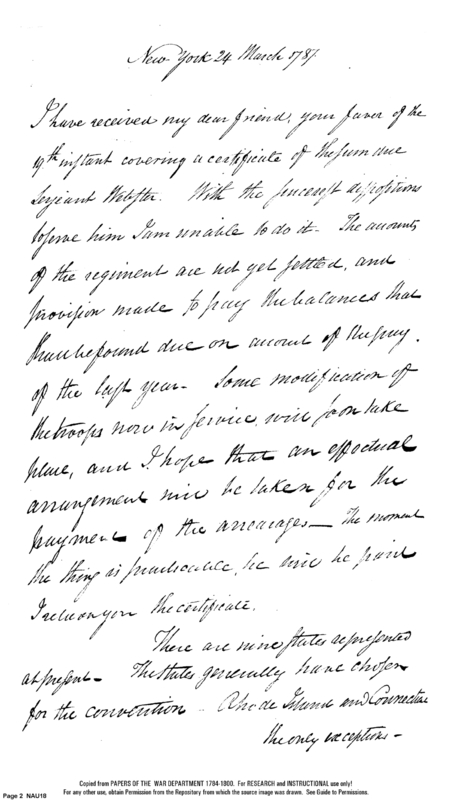 New York 24 March 1787
I have received my dear friend, your favor of the
19th instant covering a certificate of the sum due
Serjeant Webster. With the sincerest dispositions
to serve him I am unable to do it. The accounts
of the regiment are not yet settled, and
provision made to pay the balances that
shall be found due on account of the pay
of the last year. Some modification of
the troops now in service, will soon take
place, and I hope that an effectual
arrangement will be taken for the
payment of the arrearages — The moment
the thing is practicable, he will be paid
I return you the certificate.
There are nine states represented
at present — The states generally have chosen
for the convention — Rhode Island and Connecticut
the only exceptions —
Copied from PAPERS OF THE WAR DEPARTMENT 1784-1800. For RESEARCH and INSTRUCTIONAL use only!
For any other use, obtain Permission from the Repository from which the source image was drawn. See Guide to Permissions.
Page 2 NAU18